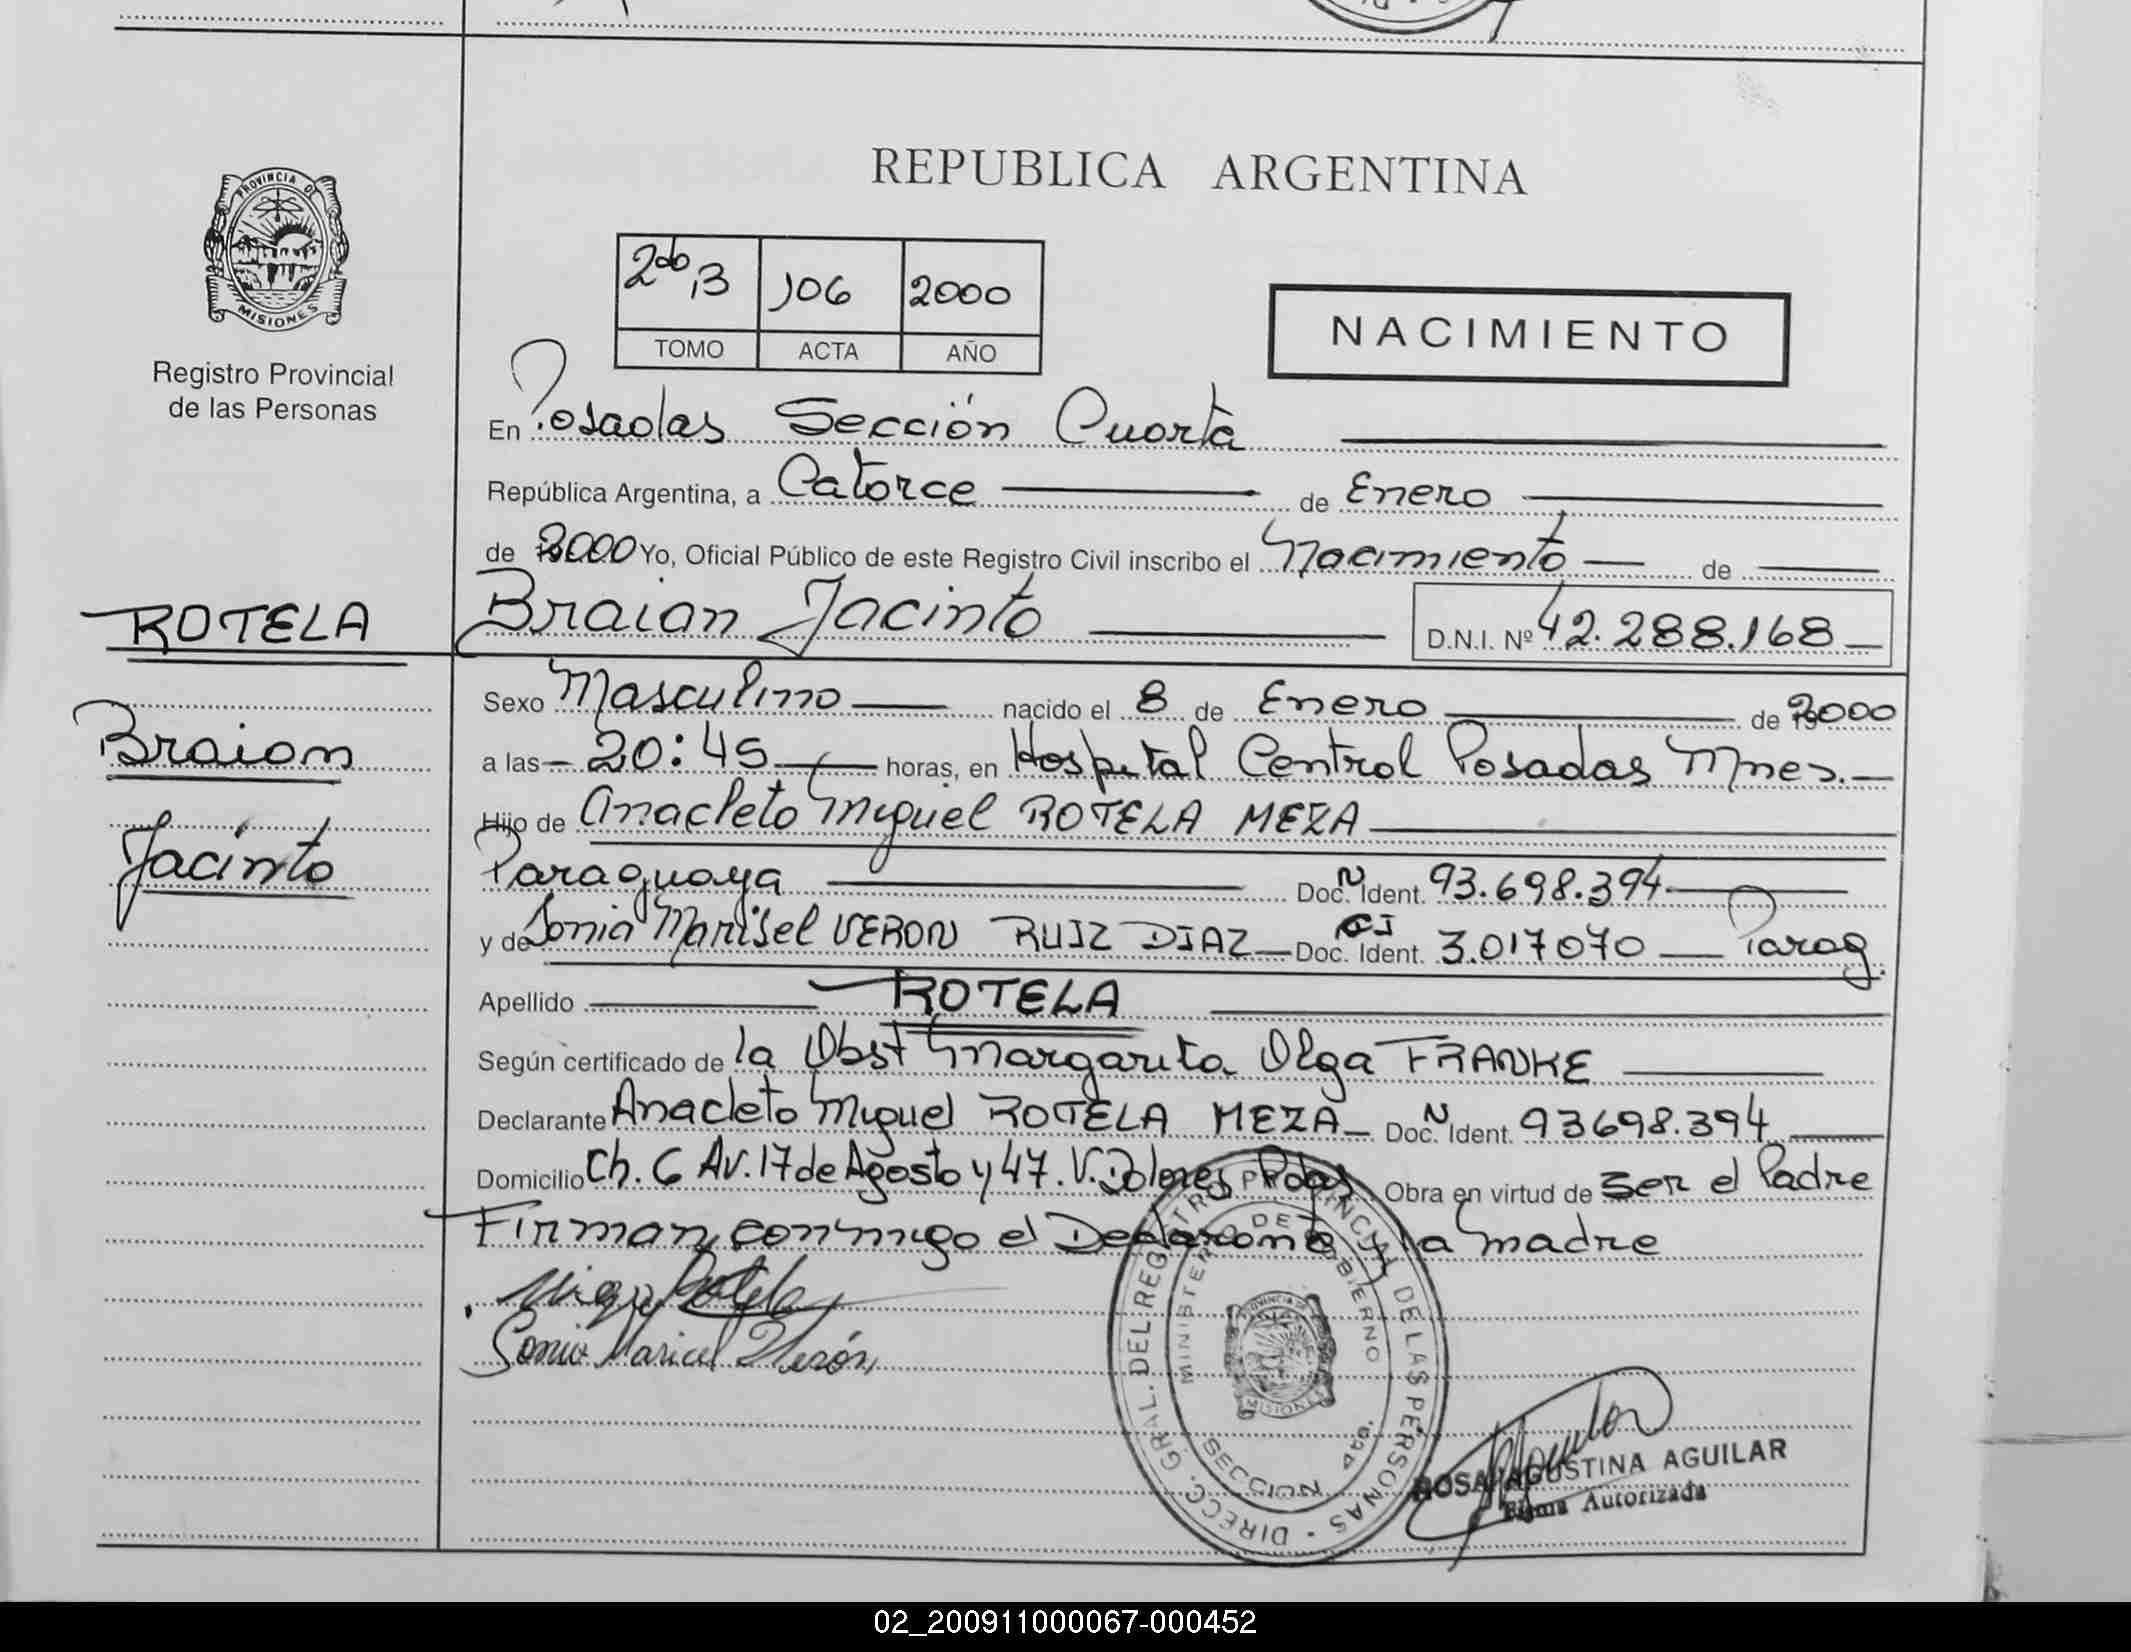 REPUBLICA ARGENTINA
PROVINCIA DE
MISIONES
Registro Provincial
de las Personas
2do B 106 2000
TOMO ACTA AÑO
NACIMIENTO
En Posadas Sección Cuarta
República Argentina, a Catorce de Enero
de 2000 Yo, Oficial Público de este Registro Civil inscribo el Nacimiento de
Braian Jacinto D.N.I. Nº 42.288.168
ROTELA
Braian
Jacinto
Sexo Masculino nacido el 8 de Enero de 2000
a las 20:45 horas, en Hospital Central Posadas Mnes.
Hijo de Anacleto Miguel ROTELA MEZA
Paraguaya Doc. N Ident. 93.698.394
y de Sonia Marisel VERON RUIZ DIAZ Doc. CI Ident. 3.017070 Parag.
Apellido ROTELA
Según certificado de la Obst Margarita Olga FRANKE
Declarante Anacleto Miguel ROTELA MEZA Doc. N Ident. 93698.394
Domicilio Ch. 6 Av. 17 de Agosto y 47. V. Dolores Pdas Obra en virtud de ser el Padre
Firman conmigo el Declarante y la madre
Sonia Maricel Verón
DIRECC. GRAL. DEL REGISTRO PROVINCIAL DE LAS PERSONAS
MINISTERIO DE GOBIERNO
PROVINCIA DE
MISIONES
SECCION 4ta.
ROSA AGUSTINA AGUILAR
Firma Autorizada
02_200911000067-000452